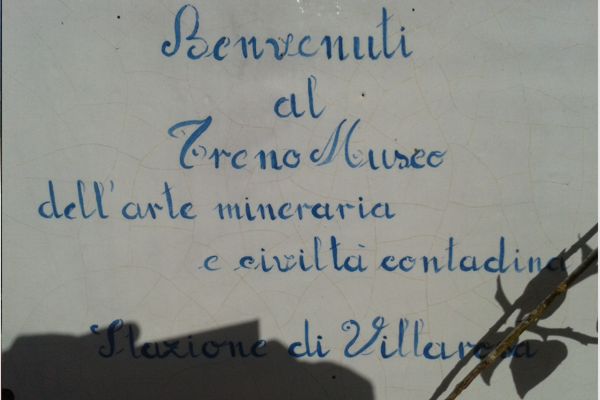 Benvenuti
al
Treno Museo
dell'arte mineraria
e civiltà contadina
Stazione di Villarosa